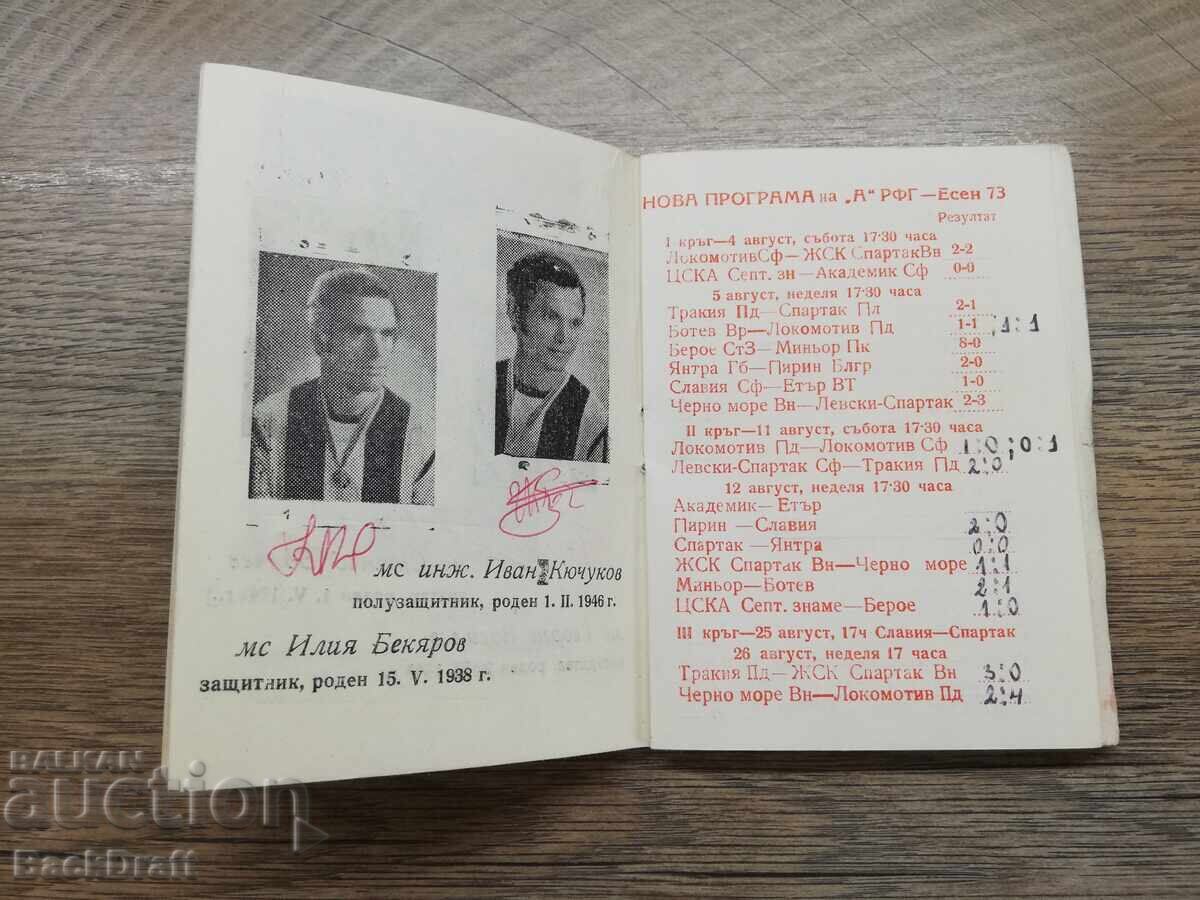 мс инж. Иван Кючуков
полузащитник, роден 1. II. 1946 г.
мс Илия Бекяров
защитник, роден 15. V. 1938 г.
НОВА ПРОГРАМА на „А“ РФГ—Есен 73
Резултат
I кръг—4 август, събота 17·30 часа
ЛокомотивСф—ЖСК СпартакВн 2-2
ЦСКА Септ. зн—Академик Сф 0-0
5 август, неделя 17·30 часа
Тракия Пд—Спартак Пл 2-1
Ботев Вр—Локомотив Пд 1-1 ; 1:1
Берое СтЗ—Миньор Пк 8-0
Янтра Гб—Пирин Блгр 2-0
Славия Сф—Етър ВТ 1-0
Черно море Вн—Левски-Спартак 2-3
II кръг—11 август, събота 17·30 часа
Локомотив Пд—Локомотив Сф 1:0 ; 0:1
Левски-Спартак Сф—Тракия Пд 2:0
12 август, неделя 17·30 часа
Академик—Етър
Пирин —Славия 2:0
Спартак—Янтра 0:0
ЖСК Спартак Вн—Черно море 1:1
Миньор—Ботев 2:1
ЦСКА Септ. знаме—Берое 1:0
III кръг—25 август, 17ч Славия—Спартак
26 август, неделя 17 часа
Тракия Пд—ЖСК Спартак Вн 3:0
Черно море Вн—Локомотив Пд 2:4
BALKAN
auction
BackDraft